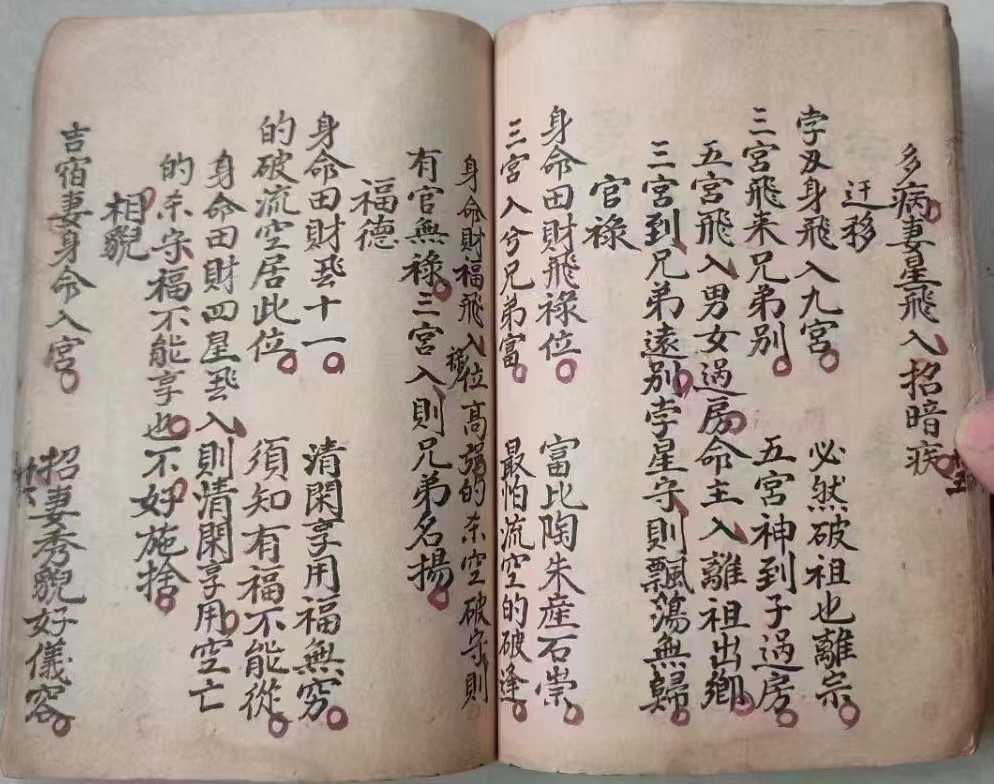 多病妻星飛入招暗疾
迁移
孛刃身飛入九宮　必然破祖也離宗
三宮飛来兄弟別　五宮神到子過房
五宮飛入男女過房命主入離祖出鄉
三宮到兄弟遠別孛星守則飄蕩無歸
官禄
身命田財飛禄位　富比陶朱産石崇
三宮入兮兄弟富　最怕流空的破逢
身命財福飛入禄位高強的杀空破守則
有官無禄三宮入則兄弟名揚
福德
身命田財飛十一　清閑享用福無窮
的破流空居此位　須知有福不能從
身命田財四星飛入則清閑享用空亡
的杀守福不能享也不好施捨
相貌
吉宿妻身命入宮　招妻秀貌好儀容